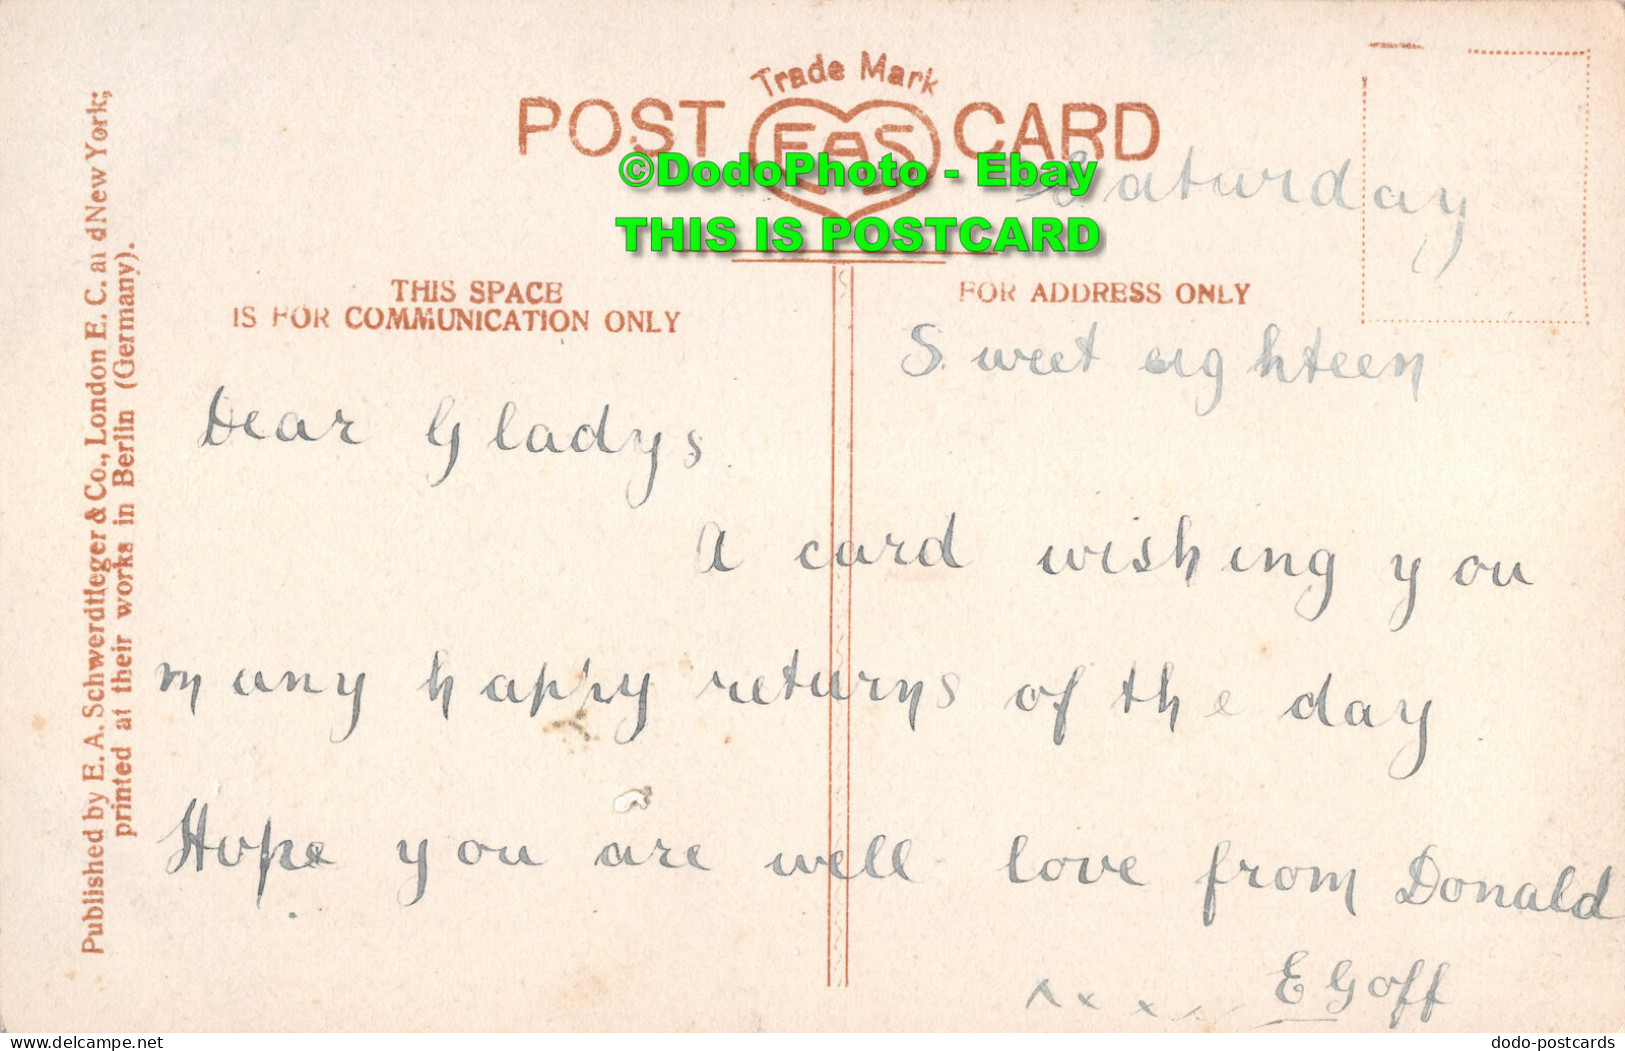 Trade Mark
POST EAS CARD
©DodoPhoto - Ebay
THIS IS POSTCARD
Saturday
THIS SPACE
IS FOR COMMUNICATION ONLY
FOR ADDRESS ONLY
Sweet eighteen
Dear Gladys
A card wishing you
many happy returns of the day
Hope you are well love from Donald
E Goff
x x x x
Published by E. A. Schwerdtfeger & Co., London E. C. and New York;
printed at their works in Berlin (Germany).
delcampe.net
dodo-postcards